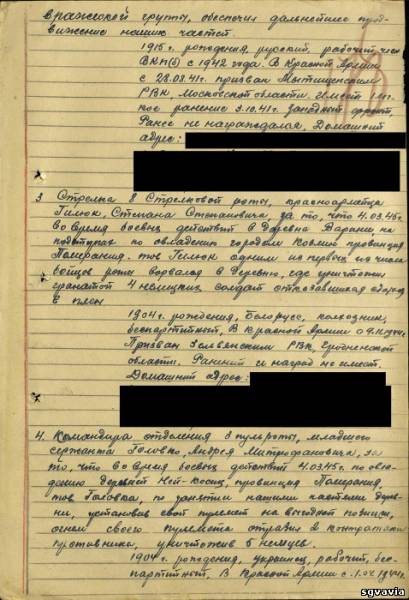 вражеской группы, обеспечил дальнейшее прод-
вижение наших частей.
1915 г. рождения, русский, рабочий, член
ВКП(б) с 1942 года. В Красной Армии
с 23.08.41г. призван Мытищенским
РВК, Московской области. Имеет
ранение 3.10.41г. Западный фронт,
Ранее не награждался, Домашний
адрес:
3. Стрелка 8 Стрелковой роты, красноармейца
Гилюк, Степана Степановича, за то, что 4.03.45г.
во время боевых действий в деревне Варнин на
подступах по овладению городом провинция
Померания. тов Гилюк одним из первых из числа
бойцов роты ворвался в деревню, где уничтожил
гранатой 4 немецких солдат отказавшихся сдаться
в плен
1904 г. рождения, Белорус, колхозник,
беспартийный, В Красной Армии с
Призван Зельвенским РВК, Гродненской
области. Ранений и наград не имеет.
Домашний адрес:
4. Командира отделения 3 пульроты, младшего
сержанта Головко, Андрея Митрофановича, за
то, что во время боевых действий 4.03.45г. по овла-
дению деревней провинция Померания,
тов. Головко, по занятии нашими частями дерев-
ни, установив свой пулемет на выгодной позиции,
огнем своего пулемета отразил 2 контратаки
противника, уничтожив 5 немцев.
1904 г. рождения, украинец, рабочий, бес-
партийный. В Красной Армии с
sgvavia